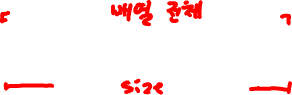 배열 전체
size